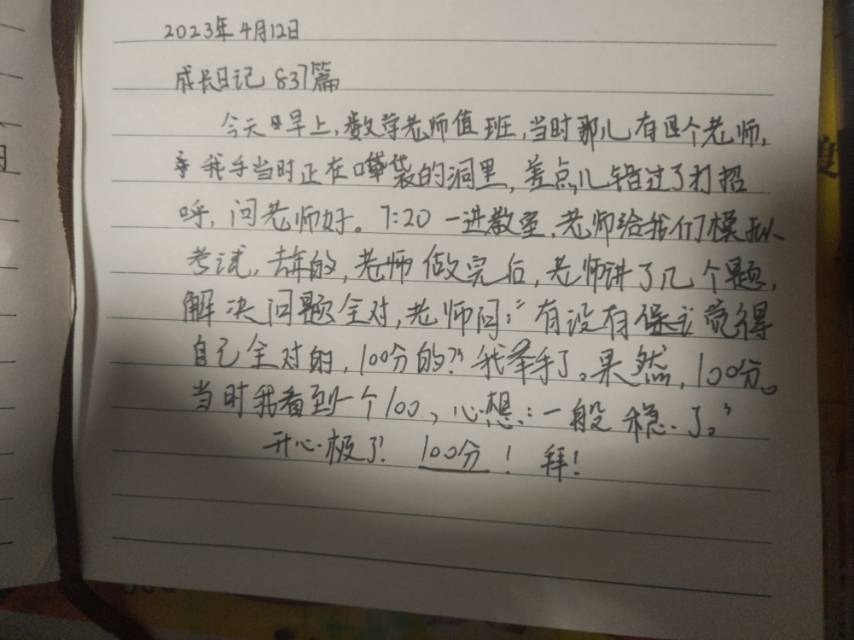 2023年4月12日
成长日记 837篇
今天早上,数学老师值班,当时那儿有四个老师,
我手当时正在嘴袋的洞里,差点儿错过了打招
呼,问老师好。7:20 一进教室,老师给我们模拟
考试,去年的,老师做完后,老师讲了几个题,
解决问题全对,老师问:“有没有觉得
自己全对的,100分的?”我举手了。果然,100分。
当时我看到一个100,心想:一般稳了。”
开心极了! 100分!拜!